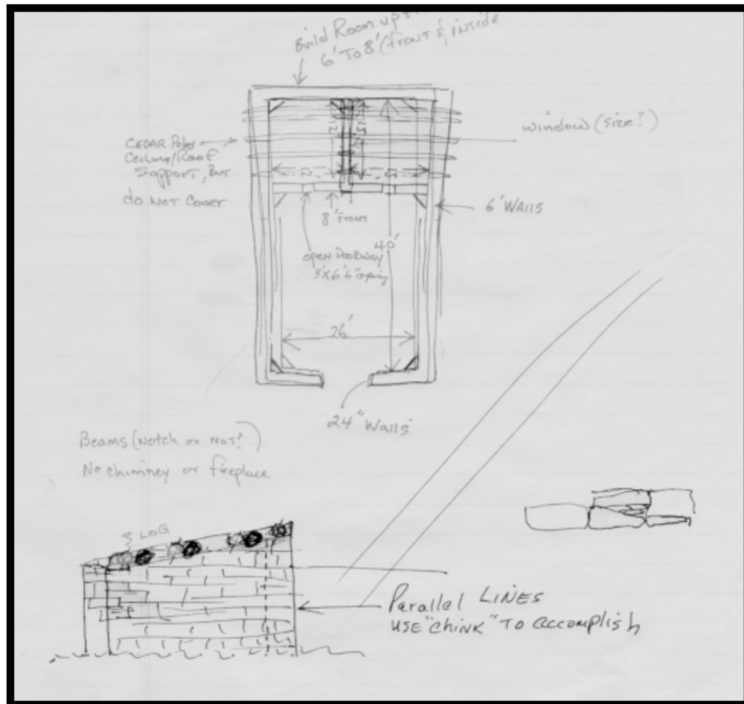 Build Room up
6' To 8' (front & inside
window (size?)
CEDAR Poles
Ceiling/Roof
Support, But
do NOT Cover
6' WALLS
8' FRONT
40'
open Doorway
26'
24" Walls
Beams (Notch or NOT?)
No chimney or fireplace
LOG
Parallel LINES
USE "chink" TO accomplish